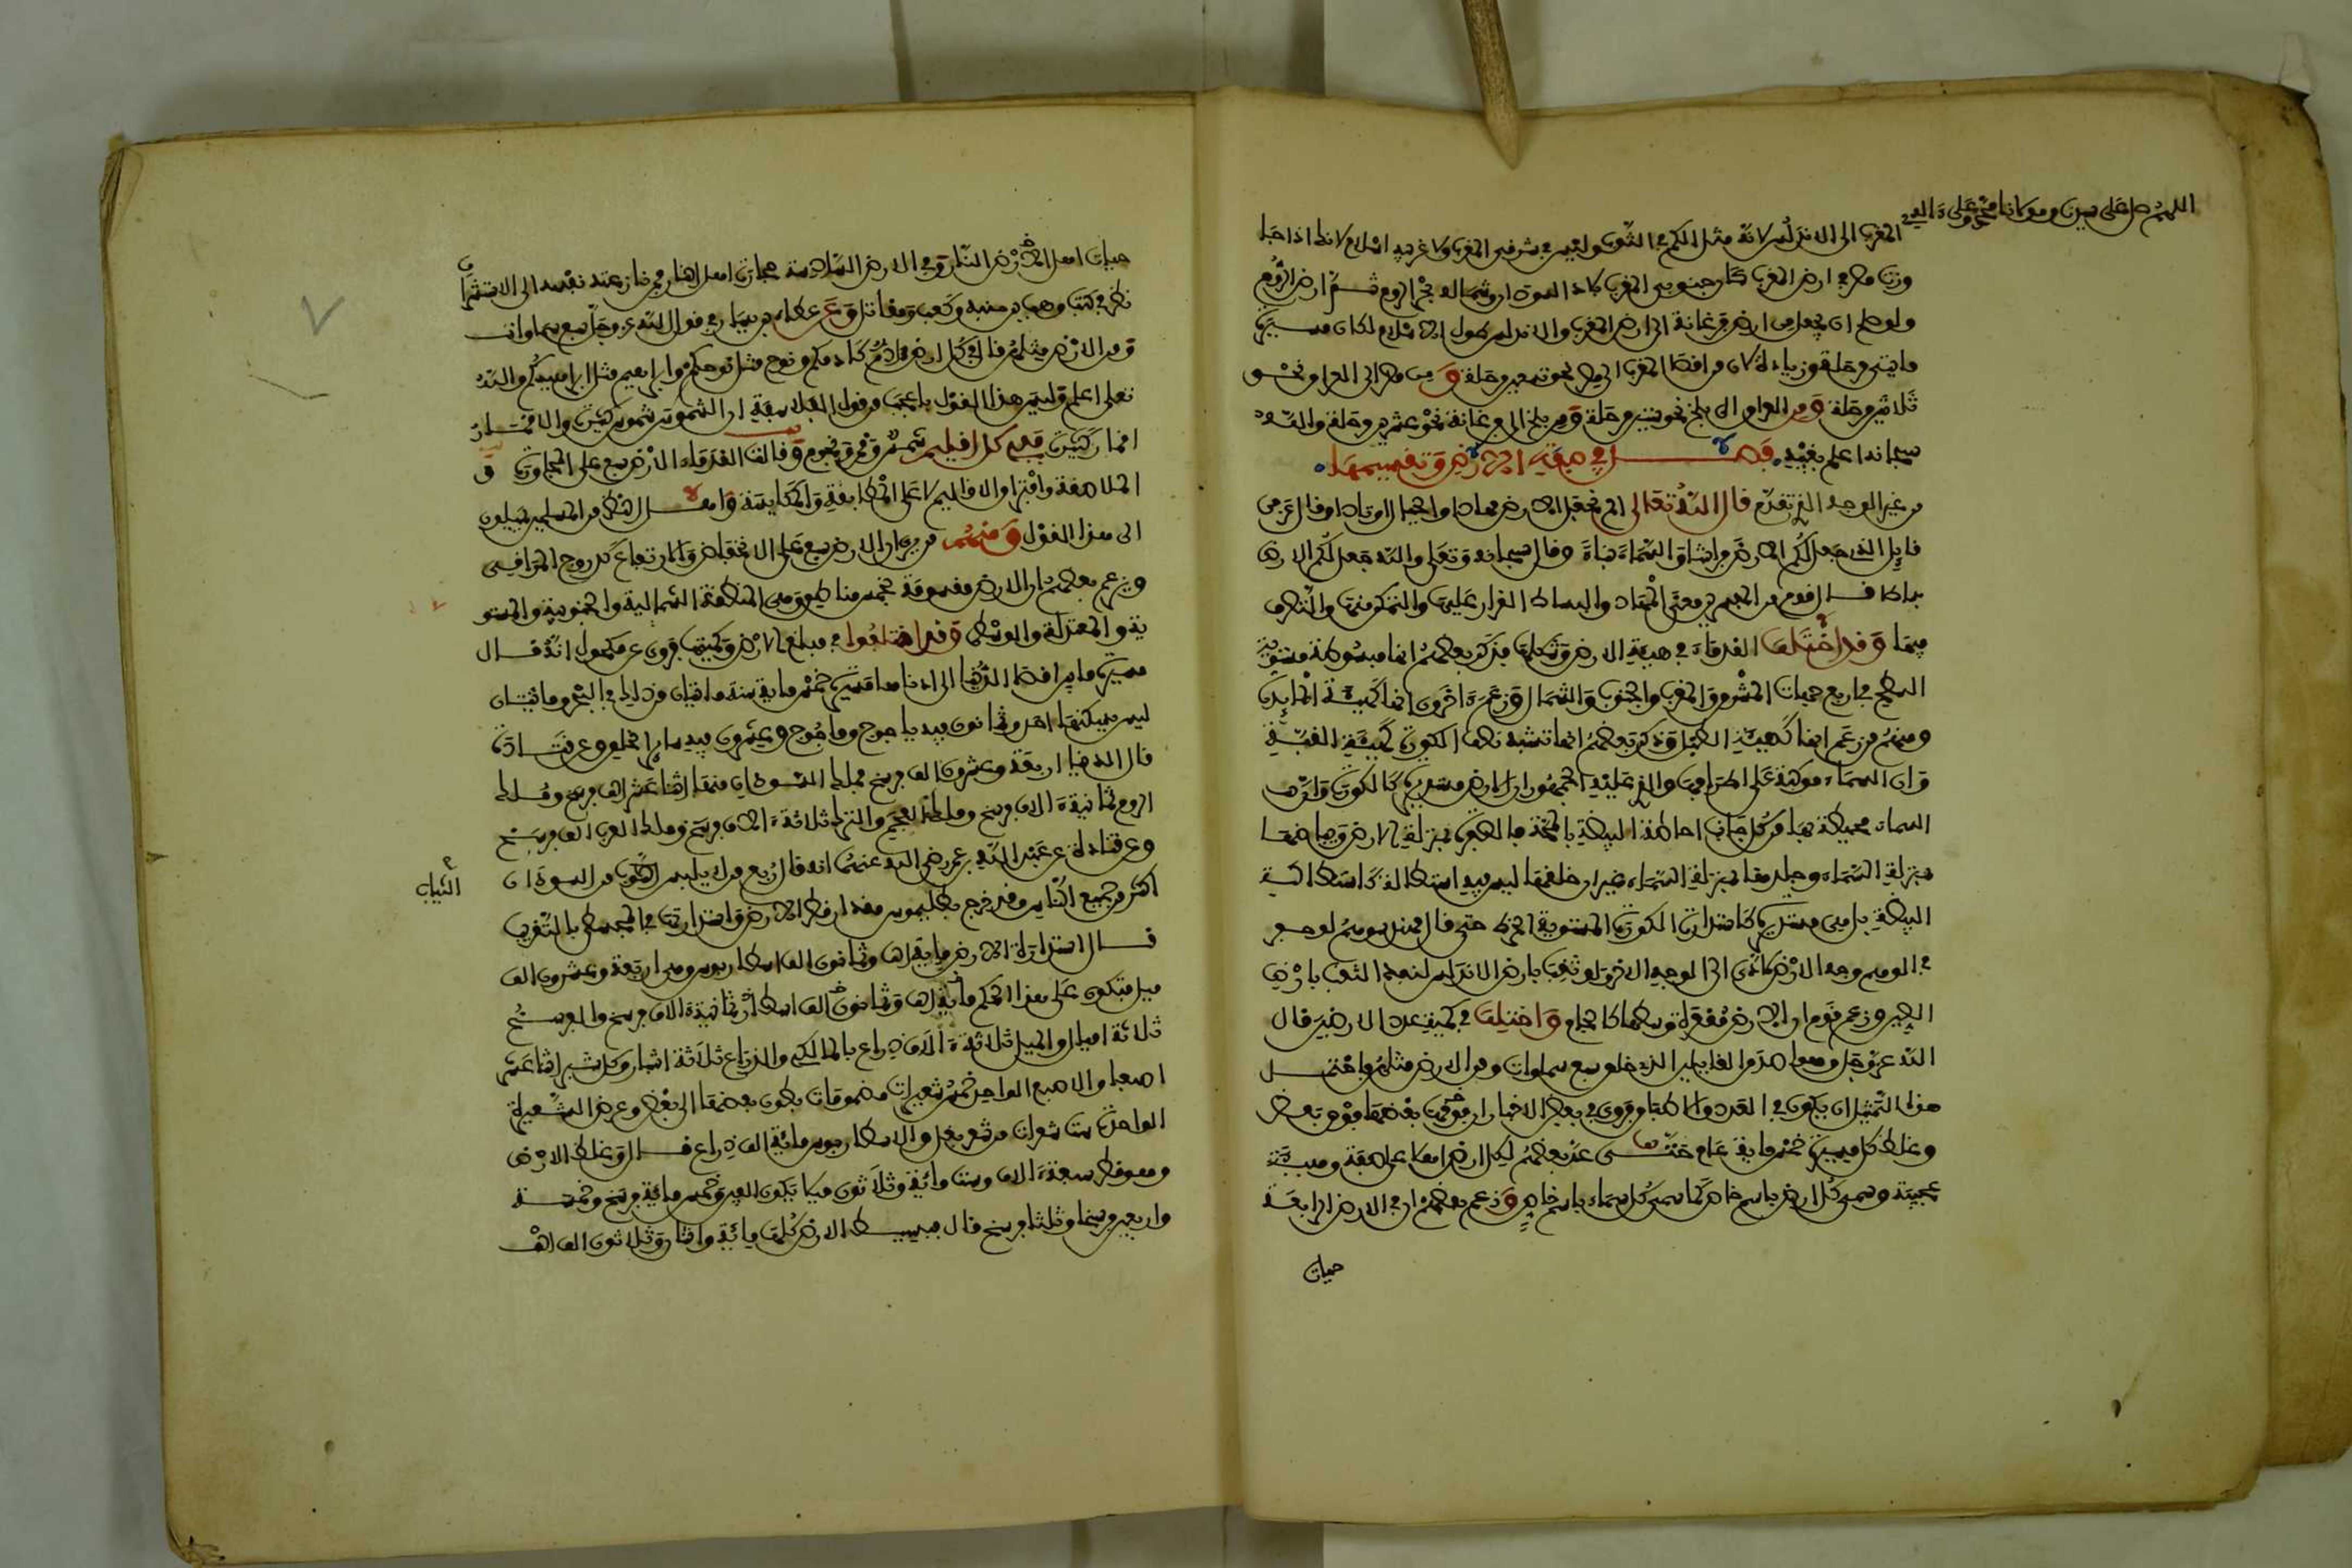 اللهم صل على سيدنا ومولانا محمد وعلى ءاله
المغرب الى الاندلس لانه مثل الكم في الثوب وليس في شرقي المغرب ولا غربيه اسلام لانك اذا جا
وزت مصر في ارض المغرب كان جنوبي المغرب بلاد السودان وشماله بحر الروم ثم ارض الروم
ولو صلح ان يجعل من ارض فرغانة الى ارض المغرب والاندلس طول الاسلام لكان مسيرة
مايتي مرحلة وزيادة لان من اقصى المغرب الى مصر نحو تسعين مرحلة ومن مصر الى العراق نحو
ثلاثين مرحلة ومن العراق الى بلخ نحو ستين مرحلة ومن بلخ الى فرغانة نحو عشرين مرحلة والله
سبحانه اعلم بغيبه فصل في صفة الارض وتقسيمها
من غير الوجه الذي تقدم قال الله تعالى الم نجعل الارض مهادا والجبال اوتادا وقال عز من
قايل الذي جعل لكم الارض فراشا والسماء بناء وقال سبحانه وتعلى والله جعل لكم الارض
بساطا قال قوم من المفسرين معنى المهاد والبساط القرار عليها والتمكن منها والتصرف
فيها وقد اختلف القدماء في هيئة الارض وشكلها فذكر بعضهم انها مبسوطة مستوية
السطح في اربع جهات المشرق والمغرب والجنوب والشمال وزعم ءاخرون انها كهيئة المائدة
ومنهم من زعم انها كهيئة الطبل وذكر بعضهم انها تشبه نصف الكورة كهيئة القبة
وان السماء مركبة على اطرافها والذي عليه الجمهور ان الارض مستديرة كالكورة وان
السماء محيطة بها من كل جانب احاطة البيضة بالمحة فالصفرة بمنزلة الارض وبياضها
بمنزلة السماء وجلدها بمنزلة السماء غير ان خلقها ليس فيه استطالة كاستطالة
البيضة بل هي مستديرة كاستدارة الكورة المستوية الخرط حتى قال مهندسوهم لو حفر
في الوهم وجه الارض لادى الى الوجه الاخر ولو ثقب بارض الاندلس لنفذ الثقب بارض
الصين وزعم قوم ان الارض مقعرة وسطها كالجام واختلف في كمية عدد الارضين قال
الله عز وجل وهو اصدق القايلين الذي خلق سبع سماوات ومن الارض مثلهن فاحتمل
هذا التمثيل ان يكون في العدد والاطباق وروي في بعض الاخبار ان بعضها فوق بعض
وغلظ كل مسيرة خمس ماية عام حتى عد بعضهم لكل ارض اهلا على صفة وهيبة
عجيبة وسمى كل ارض باسم خاص كما سمى كل سماء باسم خاص وزعم بعضهم ان في الارض الرابعة
حيات
حيات اهل النار وفي الارض السادسة حجارة اهل النار فمن نازعته نفسه الى الاستشراف
نظر في كتب وهب بن منبه وكعب ومقاتل وعن عطاء بن يسار في قول الله عز وجل سبع سماوات
ومن الارض مثلهن قال في كل ارض ءادم كآدمكم ونوح مثل نوحكم وابراهيم مثل ابراهيمكم والله
تعلى اعلم وليس هذا القول باعجب من قول الفلاسفة ان الشموس شموس كثيرة والاقمار
اقمار كثيرة ففي كل اقليم شمس وقمر ونجوم وقالت القدماء الارض سبع على المجاورة و
الملاصقة وافتراق الاقاليم لا على المطابقة والمكابسة واهل النظر من المسلمين يميلون
الى هذا القول ومنهم من يرى ان الارض سبع على الانخفاض والارتفاع كدرج المراقي
ويزعم بعضهم ان الارض مقسومة بخمس مناطق وهي المنطقة الشمالية والجنوبية والمستو
ية والمعتدلة والوسطى وقد اختلفوا في مبلغ الارض وكميتها فروي عن مكحول انه قال
مسيرة ما بين اقصى الدنيا الى ادناها مسيرة خمس ماية سنة مايتان من ذلك في البحر ومايتان
ليس يسكنها احد وثمانون فيه ياجوج وماجوج وعشرون فيه ساير الخلق وعن قتادة
قال الدنيا اربعة وعشرون الف فرسخ فملك السودان منها اثنا عشر الف فرسخ وملك
الروم ثمانية ءالاف فرسخ وملك العجم والترك ثلاثة ءالاف فرسخ وملك العرب الف فرسخ
وعن قتادة عن عبد الله بن عمر رضي الله عنهما انه قال ربع من لا يلبس الثوب من السودان
الثياب
اكثر من جميع الناس وقد خرج بطليموس مقدار قطر الارض واستدارتها في المجسطي بالتقريب
قال استدارة الارض ماية الف وثمانون الف اسطاريوس وهي اربعة وعشرون الف
ميل فيكون على هذا الحكم ماية الف وثمانون الف اسطار ثمانية ءالاف فرسخ والفرسخ
ثلاثة اميال والميل ثلاثة ءالاف ذراع بالمالكي والذراع ثلاثة اشبار وكل شبر اثنا عشر
اصبعا والاصبع الواحد خمس شعيرات مضمومات بطون بعضها الى بعض وعرض الشعيرة
الواحدة ست شعرات من شعر بغل والاسطاريوس ماية الف ذراع قال وغلظ الارض
وهو قطر سبعة ءالاف وست مائة وثلاثون ميلا يكون الفين وخمس ماية فرسخ وخمسة
واربعين فرسخا وثلثا فرسخ قال فبسيط الارض كلها مائة واثنان وثلاثون الف الف